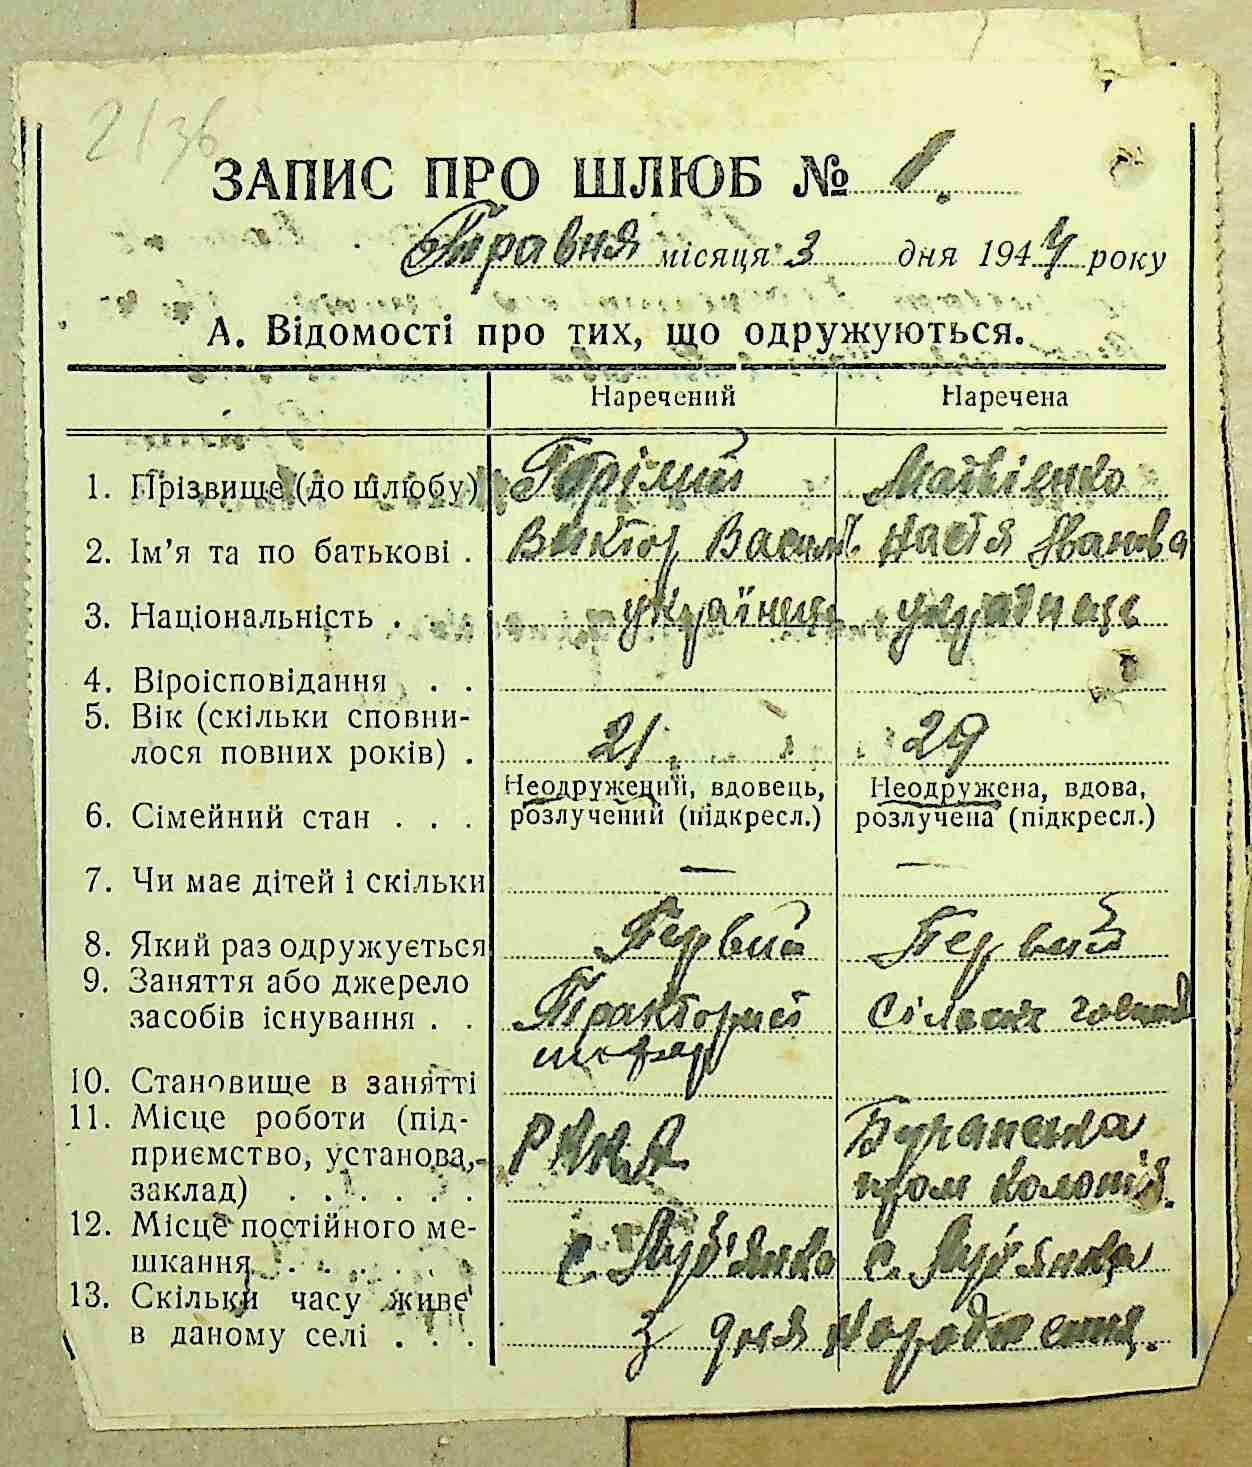 2136
ЗАПИС ПРО ШЛЮБ № 1.
Травня місяця 3 дня 1944 року
А. Відомості про тих, що одружуються.
Наречений Наречена
1. Прізвище (до шлюбу) Горілий Матвієнко
2. Ім'я та по батькові . Виктор Васил. Настя Іванівна
3. Національність . українець українець
4. Віроісповідання . .
5. Вік (скільки сповни-
лося повних років) . 21. 29
Неодружений, вдовець, Неодружена, вдова,
6. Сімейний стан . . . розлучений (підкресл.) розлучена (підкресл.)
7. Чи має дітей і скільки — —
8. Який раз одружується Первий Первий
9. Заняття або джерело
засобів існування . . Тракторист
шофер
10. Становище в занятті
11. Місце роботи (під-
приємство, установа, РККА
заклад) . . . . . . пром колонія.
12. Місце постійного ме-
шкання . . . . . . с. Луб'янка с. Луб'янка
13. Скільки часу живе
в даному селі . . . з дня народження.